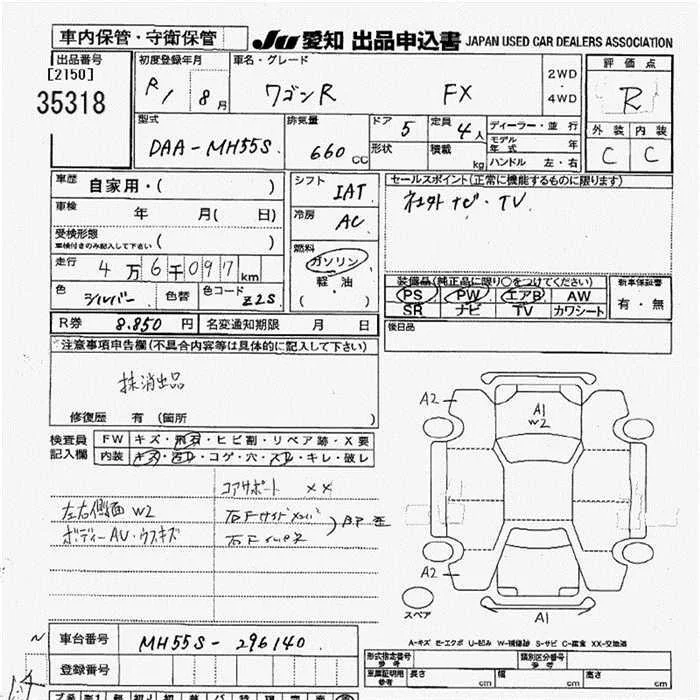 車内保管・守衛保管 JU 愛知 出品申込書 JAPAN USED CAR DEALERS ASSOCIATION
出品番号 初度登録年月 車名・グレード 評価点
[2150] 2WD
・
35318 R1 8月 ワゴンR FX 4WD R
型式 排気量 ドア 5 定員 4人 ディーラー・並行 外装 内装
モデル年式 年
DAA-MH55S 660CC 形状 積載 kg ハンドル 左・右 C C
車歴 自家用・( ) シフト IAT セールスポイント(正常に機能するものに限ります)
車検 年 月( 日) 冷房 AC ナビ・TV
受検形態
車検付きのみ記入して下さい ( ) 燃料
走行 4万6千097km ガソリン 装備品(純正品に限り○をつけてください) 新車保証書
色 シルバー 色替 色コード Z2S 軽・油 PS PW エアB AW 有・無
( ) SR ナビ TV カワシート
R券 8.850円 名変通知期限 月 日 後日品
注意事項申告欄(不具合内容等は具体的に記入して下さい)
抹消出品
修復歴 有 (箇所 )
A2 A1
W2
検査員 FW キズ・飛石・ヒビ割・リペア跡・X要
記入欄 内装 キズ・汚レ・コゲ・穴・スレ・キレ・破レ
コアサポート XX
左右側面W2 右Fサイドメンバ
ボディーAU・ウスキズ 右Fインパネ
A2
スペア A1
車台番号 MH55S-296140 A-キズ E-エクボ U-凹み W-補修跡 S-サビ C-腐食 XX-交換済
登録番号 形式指定番号 参考 類別区分番号 参考
車庫証明用 参考 長さ cm 幅 cm 高さ cm